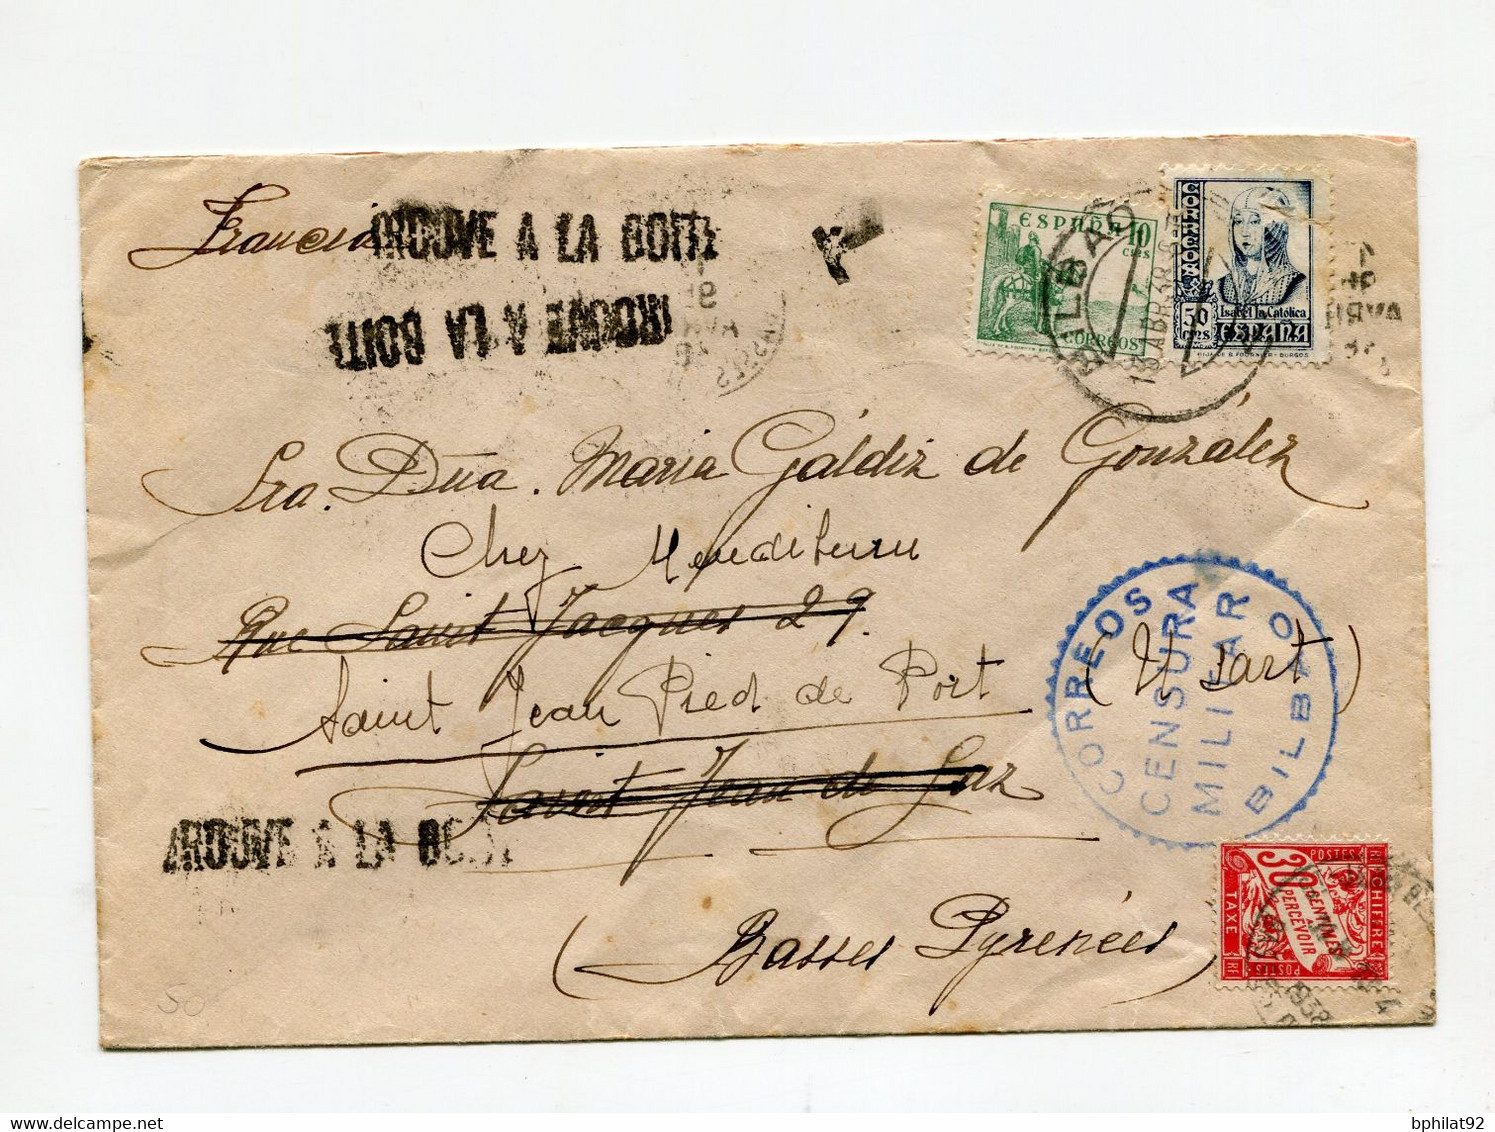 Francia
TROUVE A LA BOITE
TROUVE A LA BOITE
T
ESPAÑA 10
CMS.
CORREOS
CORREOS
50
CMS
Isabel la Católica
ESPAÑA
HIJA DE B. FOURNIER - BURGOS
BILBAO
18 ABR 38
Sra. Dña. Maria Gáldiz de González
Chez Mendiburu
Rue Saint Jacques 29.
Saint Jean Pied de Port
Saint Jean de Luz
(Basses Pyrenées)
CORREOS
CENSURA
MILITAR
BILBAO
TROUVE A LA BOITE
POSTES RF
CHIFFRE
30
CENTIMES
A
PERCEVOIR
TAXE
RF POSTES
1938
50
bphilat92